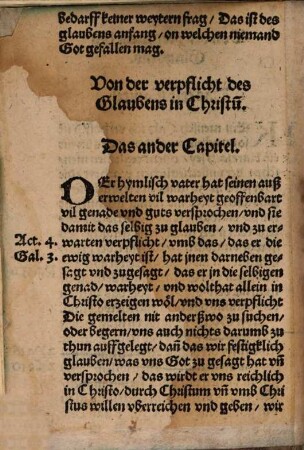 bedarff keiner weytern frag / Das ist des
glaubens anfang / on welchen niemand
Got gefallen mag.
Von der verpflicht des
Glaubens in Christū.
Das ander Capitel.
DEr hymlisch vater hat seinen auß
erwelten vil warheyt geoffenbart
vil genade vnd guts versprochen / vnd sie
damit das selbig zu glauben / vnd zu er-
Act. 4. warten verpflicht / vmb das / das er die
Gal. 3. ewig warheyt ist / hat jnen darneben ge-
sagt vnd zugesagt / das er in die selbigen
genad / warheyt / vnd wolthat allein in
Christo erzeigen wöl / vnd vns verpflicht
Die gemelten nit anderßwo zu suchen /
oder begern / vns auch nichts darumb zu
thun auffgelegt / dañ das wir festigklich
glauben / was vns Got zu gesagt hat vñ
versprochen / das wirdt er vns reichlich
in Christo / durch Christum vñ vmb Chri
stus willen vberreichen vnd geben / wir